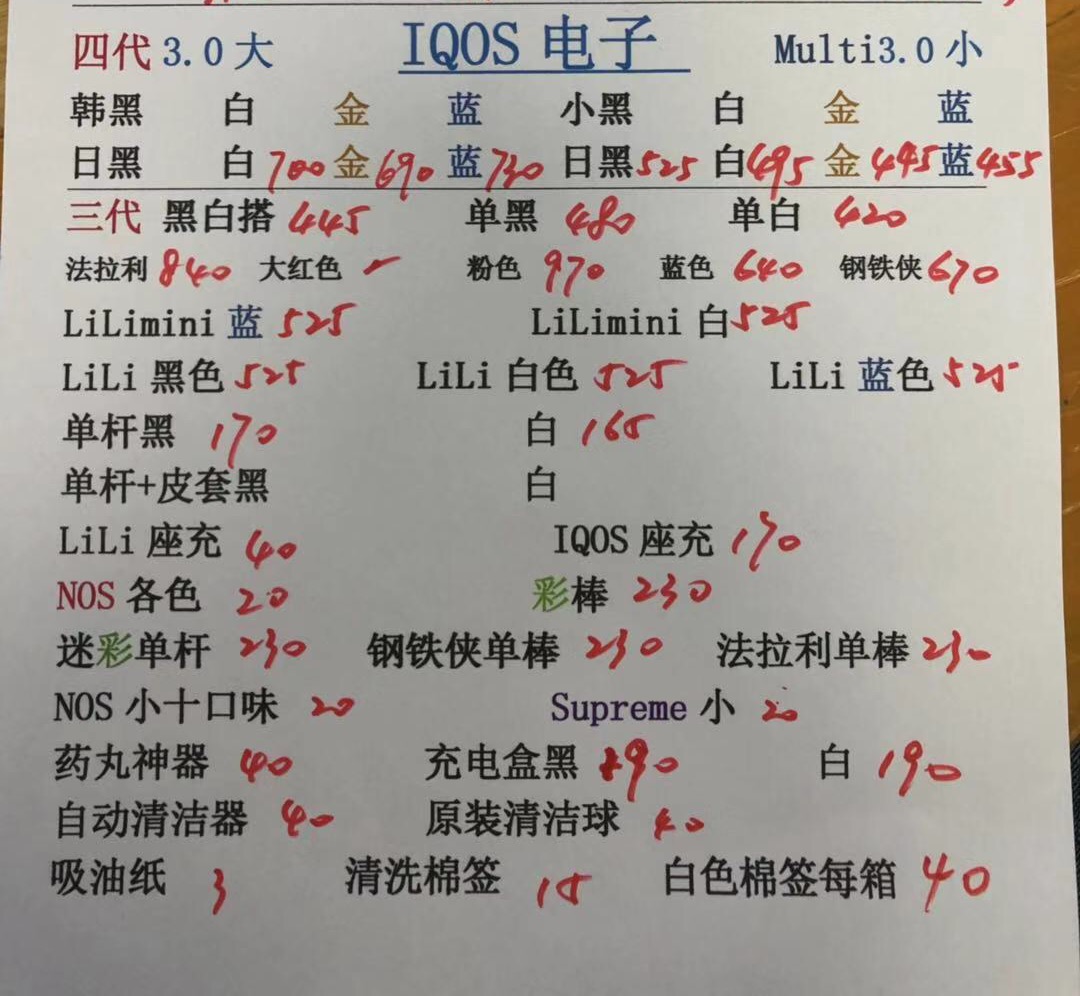 四代 3.0 大 IQOS 电子 Multi3.0 小
韩黑 白 金 蓝 小黑 白 金 蓝
日黑 白 700 金 690 蓝 730 日黑 525 白 495 金 445 蓝 455
三代 黑白搭 445 单黑 480 单白 420
法拉利 840 大红色 粉色 970 蓝色 640 钢铁侠 670
LiLimini 蓝 525 LiLimini 白 525
LiLi 黑色 525 LiLi 白色 525 LiLi 蓝色 525
单杆黑 170 白 165
单杆+皮套黑 白
LiLi 座充 40 IQOS 座充 170
NOS 各色 20 彩棒 230
迷彩单杆 230 钢铁侠单棒 230 法拉利单棒 230
NOS 小十口味 20 Supreme 小 20
药丸神器 40 充电盒黑 190 白 190
自动清洁器 40 原装清洁球 40
吸油纸 3 清洗棉签 18 白色棉签每箱 40